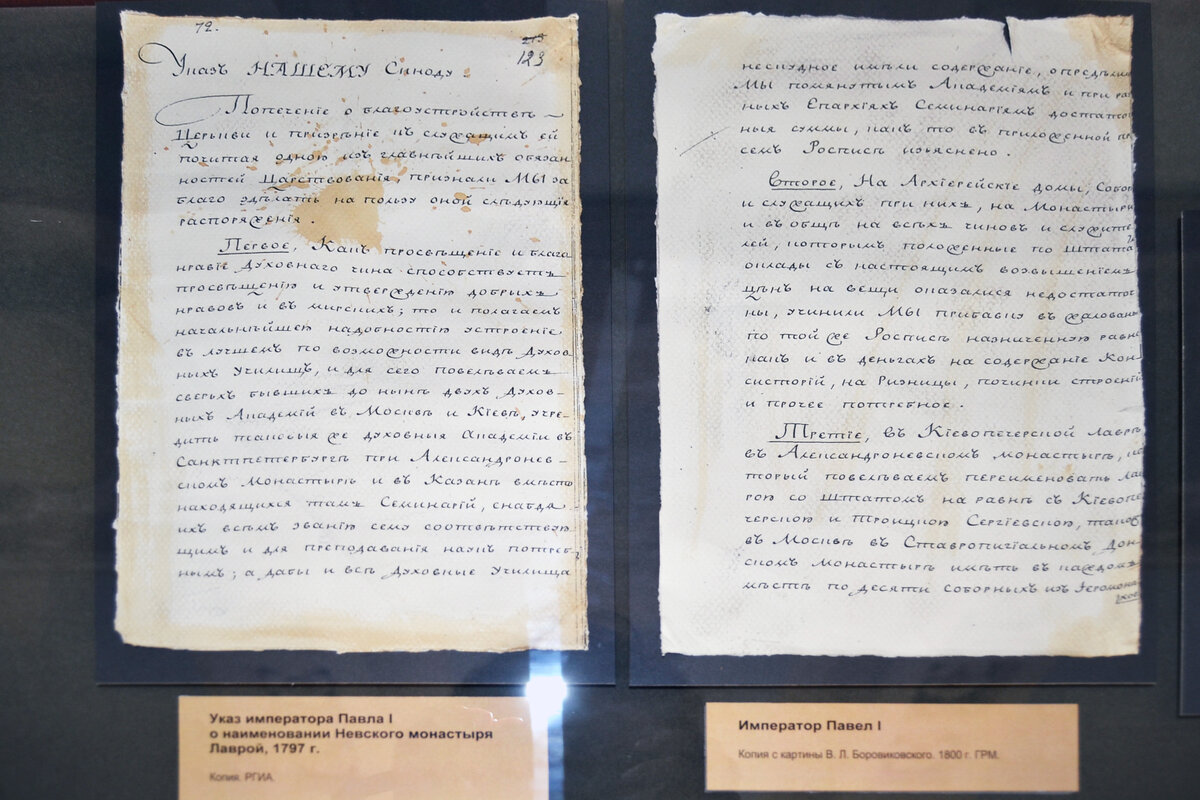 72.
213
123
Указъ НАШЕМУ Синоду.
Попеченіе о благоустройствѣ
Церькви и призрѣніе къ служащимъ ей
почитая одною изъ главнѣйшихъ обязан
ностей Царствованія, признали МЫ за
благо здѣлать на пользу оной слѣдующія
распоряженія.
Первое, Какъ просвѣщеніе и благо
нравіе Духовнаго чина способствуетъ
просвѣщенію и утвержденію добрыхъ
нравовъ и въ мирскихъ; то и полагаемъ
начальнѣйшею надобностію устроеніе
въ лучшемъ по возможности видѣ Духов
ныхъ Училищъ, и для сего повелѣваемъ
сверьхъ бывшихъ до нынѣ двухъ Духов-
ныхъ Академій въ Москвѣ и Кіевѣ, учре-
дить таковыя же духовныя Академіи въ
Санктпетербургѣ при Александронев-
скомъ Монастырѣ и въ Казанѣ вмѣсто
находящихся тамъ Семинарій, снабдя
ихъ всѣмъ званію сему соотвѣтствую
щимъ и для преподаванія наукъ потреб
нымъ; а дабы и всѣ Духовныя Училища
нескудное имѣли содержаніе, опредѣлили
МЫ помянутымъ Академіямъ и при раз
ныхъ Епархіяхъ Семинаріямъ достаточ
ныя суммы, какъ то въ приложенной при
семъ Росписѣ изьяснено.
Второе, На Архіерейскіе домы, Собор
и служащихъ при нихъ, на Монастыри
и въ общѣ на всѣхъ чиновъ и служите
лей, которымъ положенные по штата
оклады съ настоящимъ возвышеніемъ
цѣнъ на вещи оказалися недостаточ
ны, учинили МЫ прибавку въ жалованье
по той же Росписѣ назначенную равно
какъ и въ деньгахъ на содержаніе Кон-
систорій, на Ризницы, починки строеній
и прочее потребное.
Третіе, въ Кіевопечерской лаврѣ
въ Александроневскомъ монастырѣ, ко
торый повелѣваемъ переименовать лав
рою со штатомъ на равнѣ съ Кіевопе
черскою и Троицкою Сергіевскою, такоже
въ Москвѣ въ Ставропигіальномъ Дон-
скомъ Монастырѣ имѣть въ каждомъ
мѣстѣ по десяти соборныхъ изъ Іеромона
ховъ
Указ императора Павла I
о наименовании Невского монастыря
Лаврой, 1797 г.
Копия. РГИА.
Император Павел I
Копия с картины В. Л. Боровиковского. 1800 г. ГРМ.